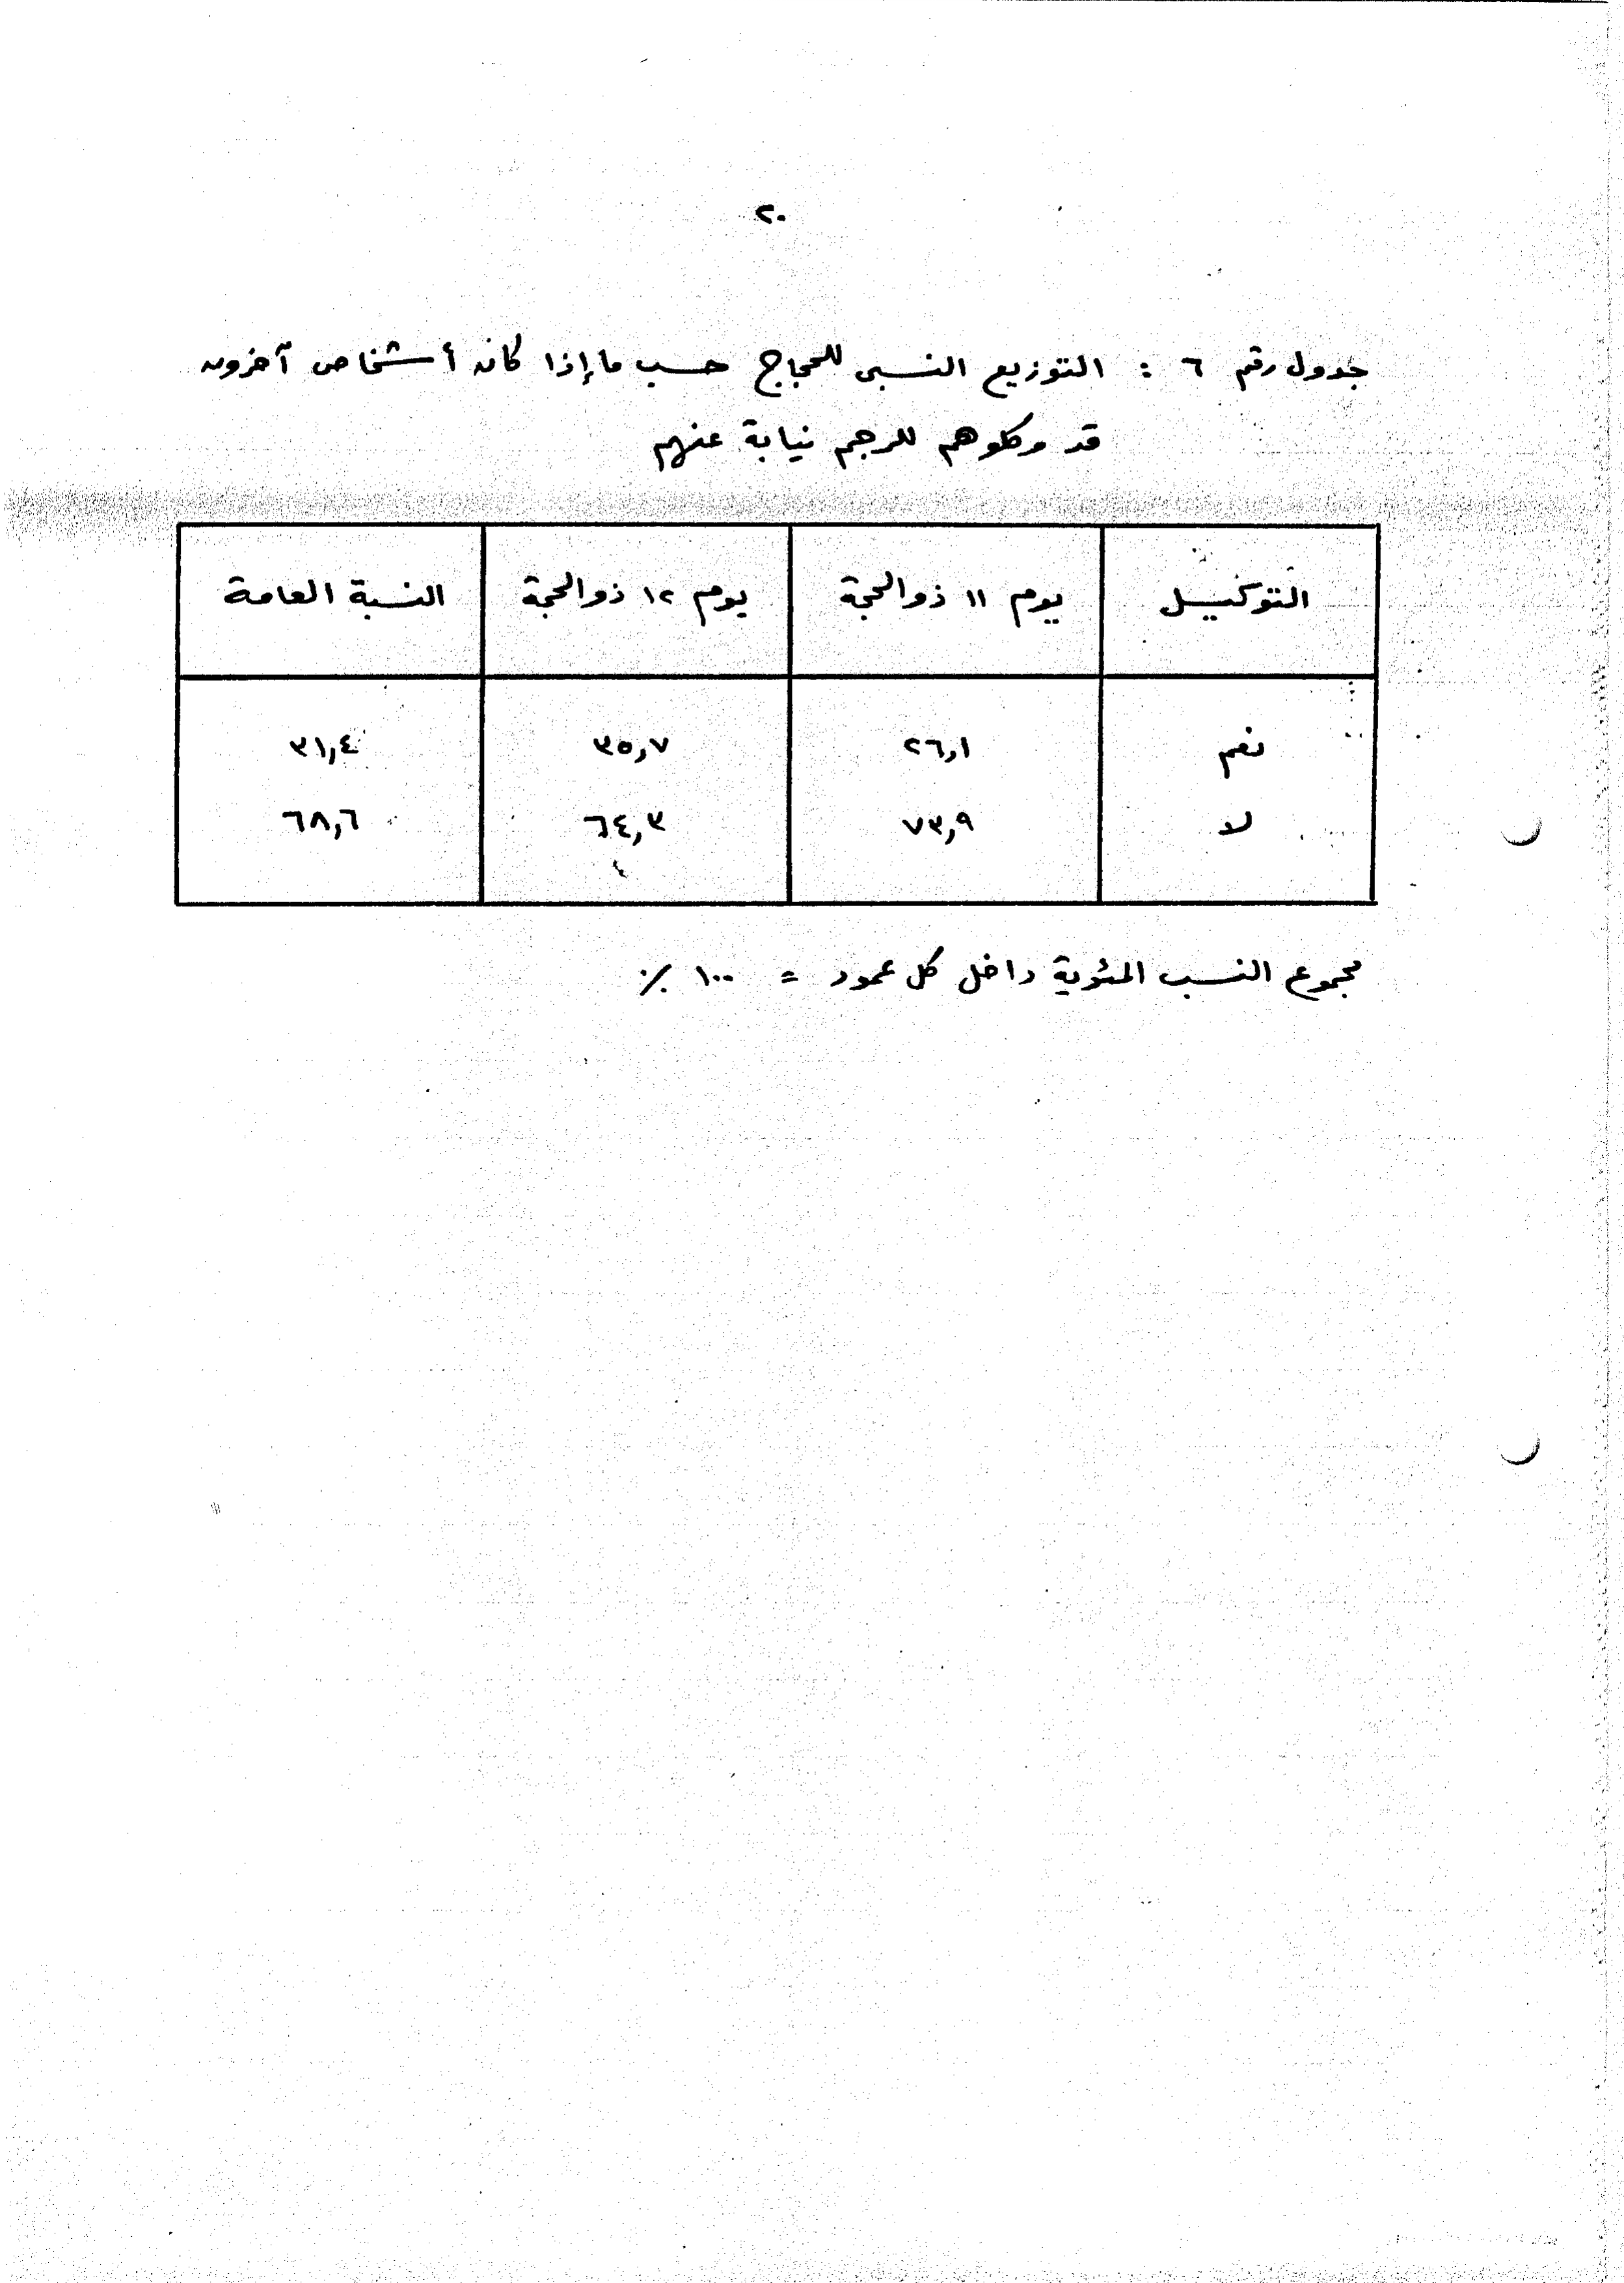 ٢٠
جدول رقم ٦ : التوزيع النسبى للحجاج حسب ما إذا كان أشخاص آخرون
قد وكلوهم للرجم نيابة عنهم
التوكيل يوم ١١ ذوالحجة يوم ١٢ ذوالحجة النسبة العامة
نعم ٢٦,١ ٣٥,٧ ٣١,٤
لا ٧٣,٩ ٦٤,٣ ٦٨,٦
مجموع النسب المئوية داخل كل عمود = ١٠٠ ٪